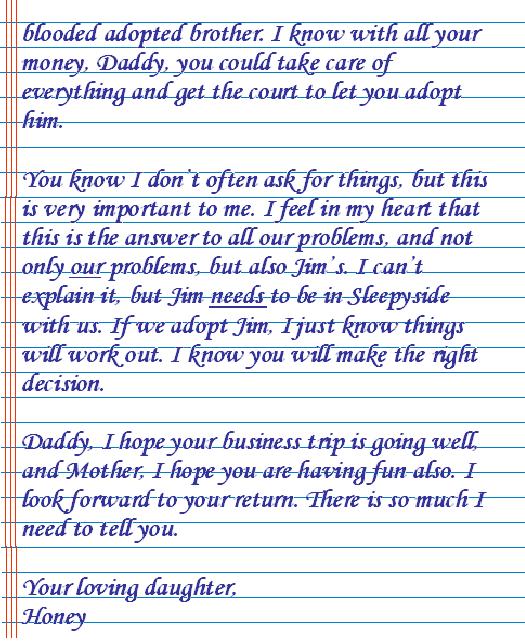 blooded adopted brother. I know with all your
money, Daddy, you could take care of
everything and get the court to let you adopt
him.
You know I don't often ask for things, but this
is very important to me. I feel in my heart that
this is the answer to all our problems, and not
only our problems, but also Jim's. I can't
explain it, but Jim needs to be in Sleepyside
with us. If we adopt Jim, I just know things
will work out. I know you will make the right
decision.
Daddy, I hope your business trip is going well,
and Mother, I hope you are having fun also. I
look forward to your return. There is so much I
need to tell you.
Your loving daughter,
Honey